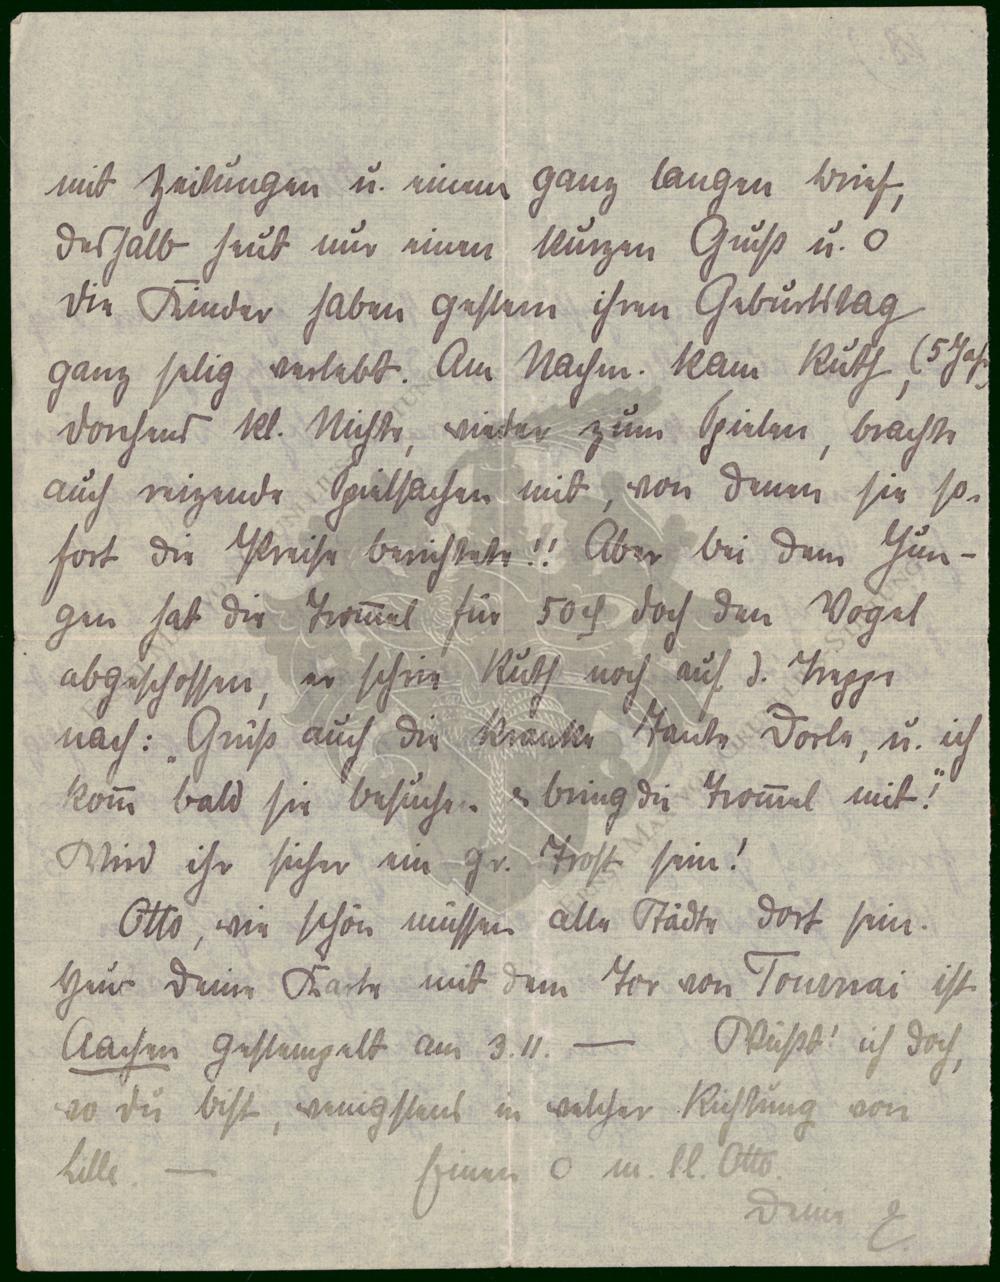 mit Zeitungen u. einem ganz langen Brief,
deshalb heut nur einen kurzen Gruß u. O
Die Kinder haben gestern ihren Geburtstag
ganz selig verlebt. Am Nachm. kam Ruth, (5 Jahr)
Dorchens kl. Nichte, wieder zum Spielen, brachte
auch reizende Spielsachen mit, von denen sie so-
fort die Preise berichtete!! Aber bei dem Jun-
gen hat die Trom̅el für 50 ₰ doch den Vogel
abgeschossen, er schrie Ruth noch auf d. Treppe
nach: „Grüß auch die kranke Tante Dorle, u. ich
kom̅ bald sie besuchen & bring die Trom̅el mit!"
Wird ihr sicher ein gr. Trost sein!
Otto, wie schön müssen alle Städte dort sein.
Hier Deine Karte mit dem Tor von Tournai ist
Aachen gestempelt am 3.11. — Wüßt' ich doch,
wo du bist, wenigstens in welcher Richtung von
Lille. — Einen O m. ll. Otto.
Deine E.